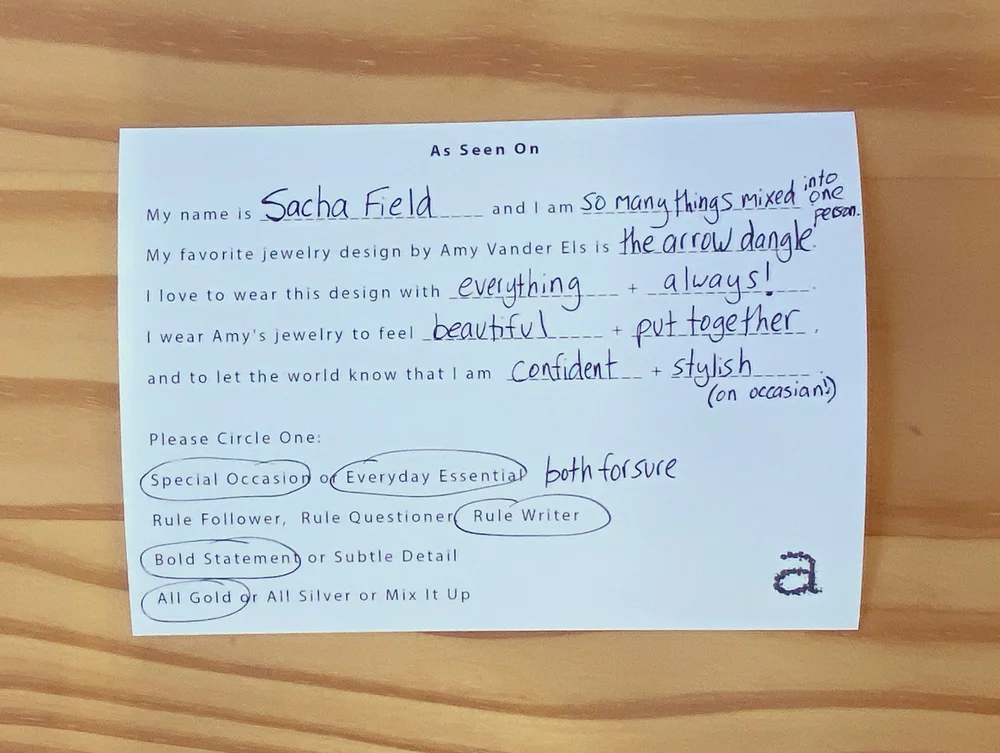 As Seen On
My name is Sacha Field and I am so many things mixed into one person.
My favorite jewelry design by Amy Vander Els is the arrow dangle.
I love to wear this design with everything + always!.
I wear Amy's jewelry to feel beautiful + put together.
and to let the world know that I am confident + stylish.
(on occasian!)
Please Circle One:
Special Occasion or Everyday Essential both for sure
Rule Follower, Rule Questioner, Rule Writer
Bold Statement or Subtle Detail
All Gold or All Silver or Mix It Up
a